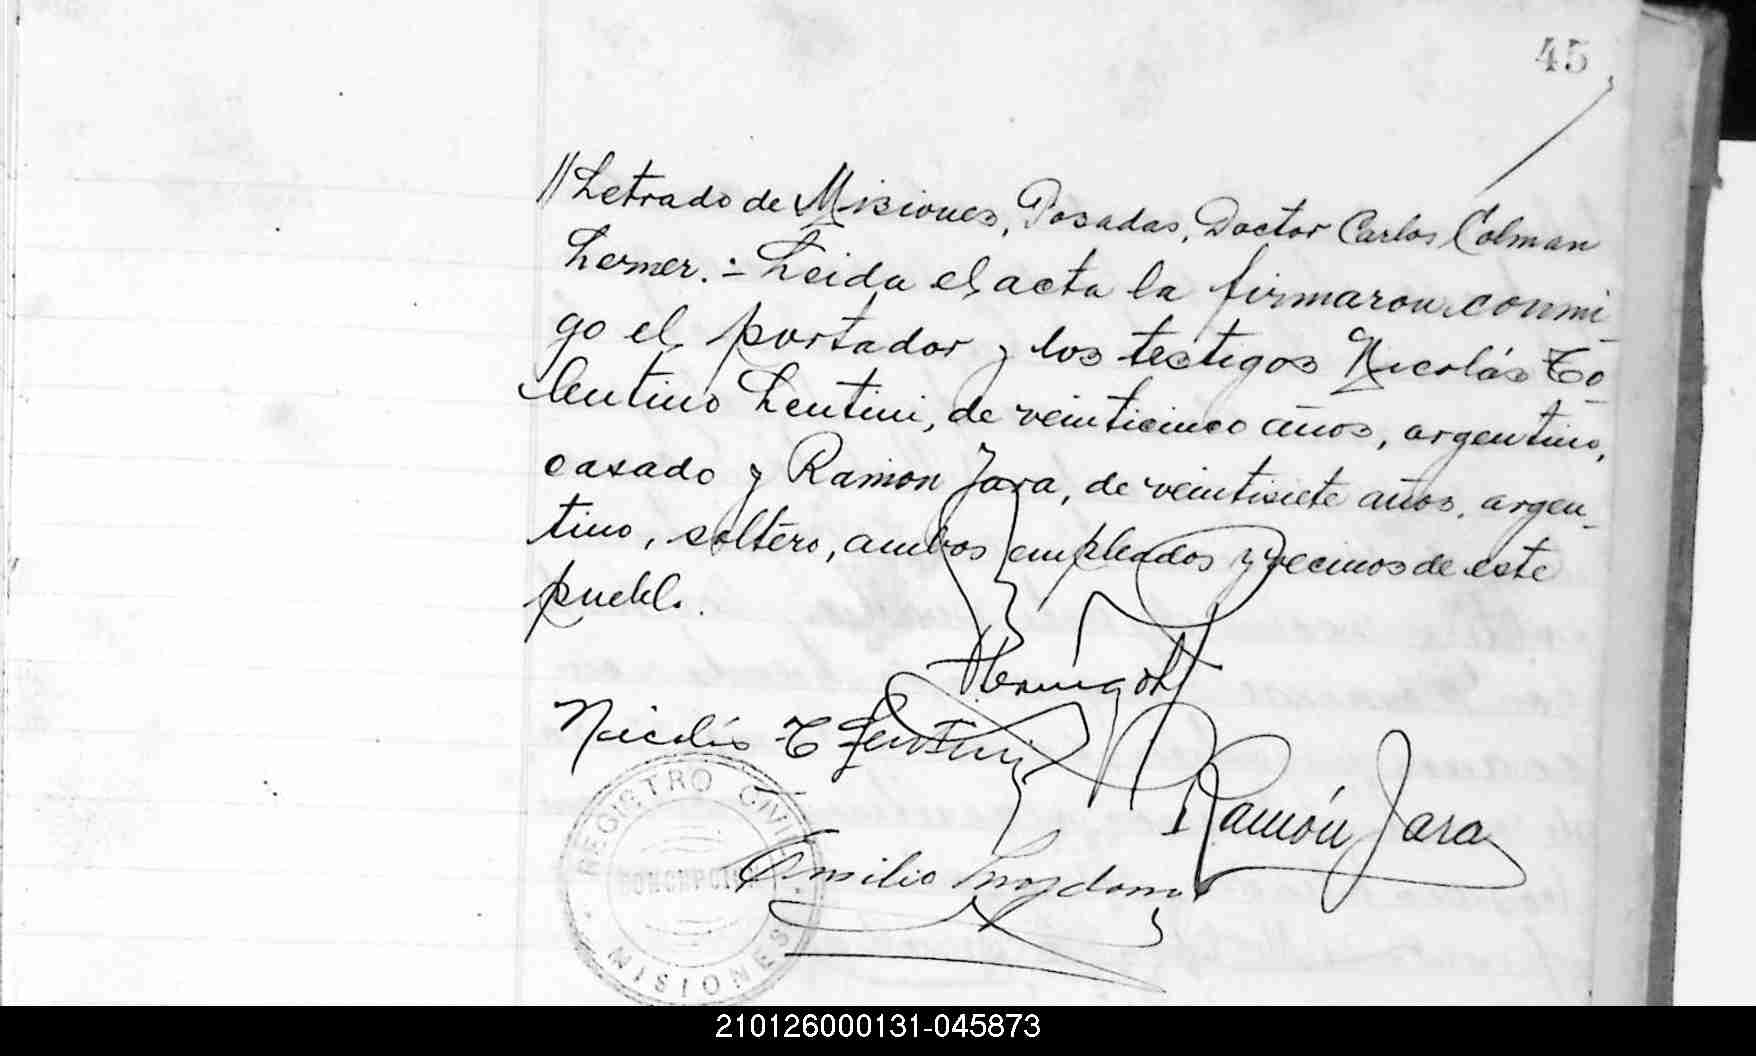 45
//Letrado de Misiones, Posadas, Doctor Carlos Colman
Lerner.- Leida el acta la firmaron conmi-
go el portador y los testigos Nicolás To-
lentino Lentini, de veinticinco años, argentino,
casado y Ramon Jara, de veintisiete años, argen-
tino, soltero, ambos empleados y vecinos de este
pueblo.
Nicolás T Lentini
Ramón Jara
Emilio
REGISTRO CIVIL
CONCEPCION
MISIONES
210126000131-045873